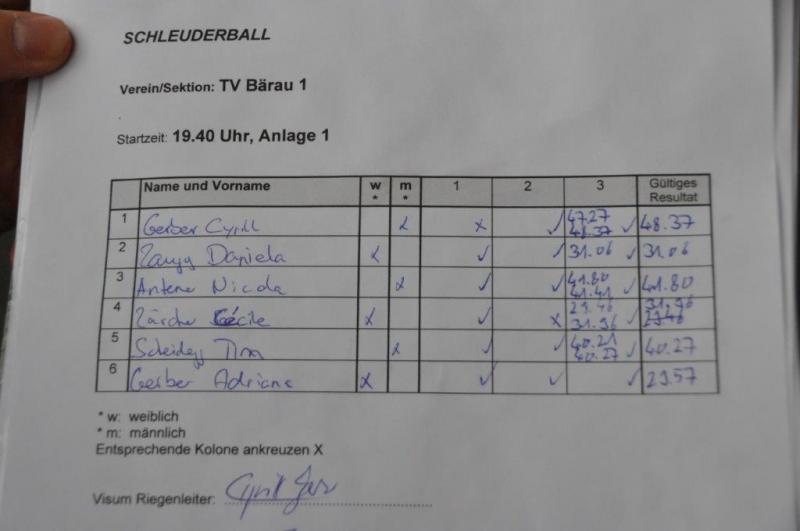 SCHLEUDERBALL
Verein/Sektion: TV Bärau 1
Startzeit: 19.40 Uhr, Anlage 1
Name und Vorname w * m * 1 2 3 Gültiges Resultat
1 Gerber Cyrill x x ✓ 47.27 48.37 ✓ 48.37
2 Zaugg Daniela x ✓ ✓ 31.06 ✓ 31.06
3 Antener Nicola x ✓ ✓ 41.80 41.41 ✓ 41.80
4 Zürcher Cécile x ✓ x 29.46 31.96 ✓ 31.96 29.46
5 Scheidegg Tim x ✓ ✓ 40.21 40.27 ✓ 40.27
6 Gerber Adriane x ✓ ✓ ✓ 29.57
* w: weiblich
* m: männlich
Entsprechende Kolone ankreuzen X
Visum Riegenleiter: